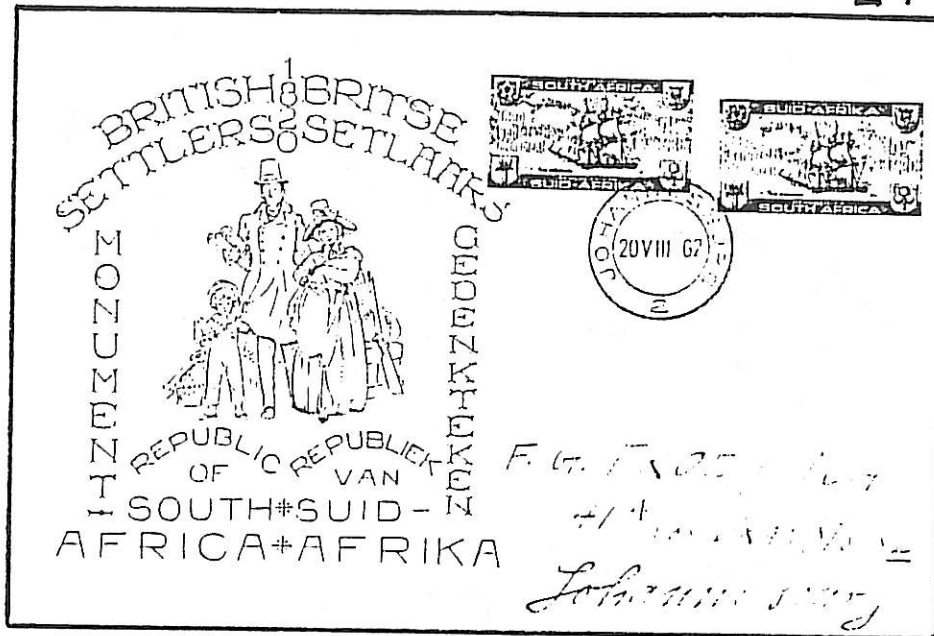 BRITISH 1820 BRITSE
SETTLERS SETLAARS
MONUMENT
GEDENKTEKEN
REPUBLIC REPUBLIEK
OF VAN
SOUTH SUID-
AFRICA AFRIKA
SOUTH AFRICA
SUID-AFRIKA
SUID-AFRIKA
SOUTH AFRICA
20 VIII 62
2
F. G.
Johannesburg